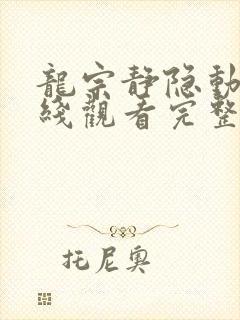 龍宗静隐動
綫觀看完整
托尼奥